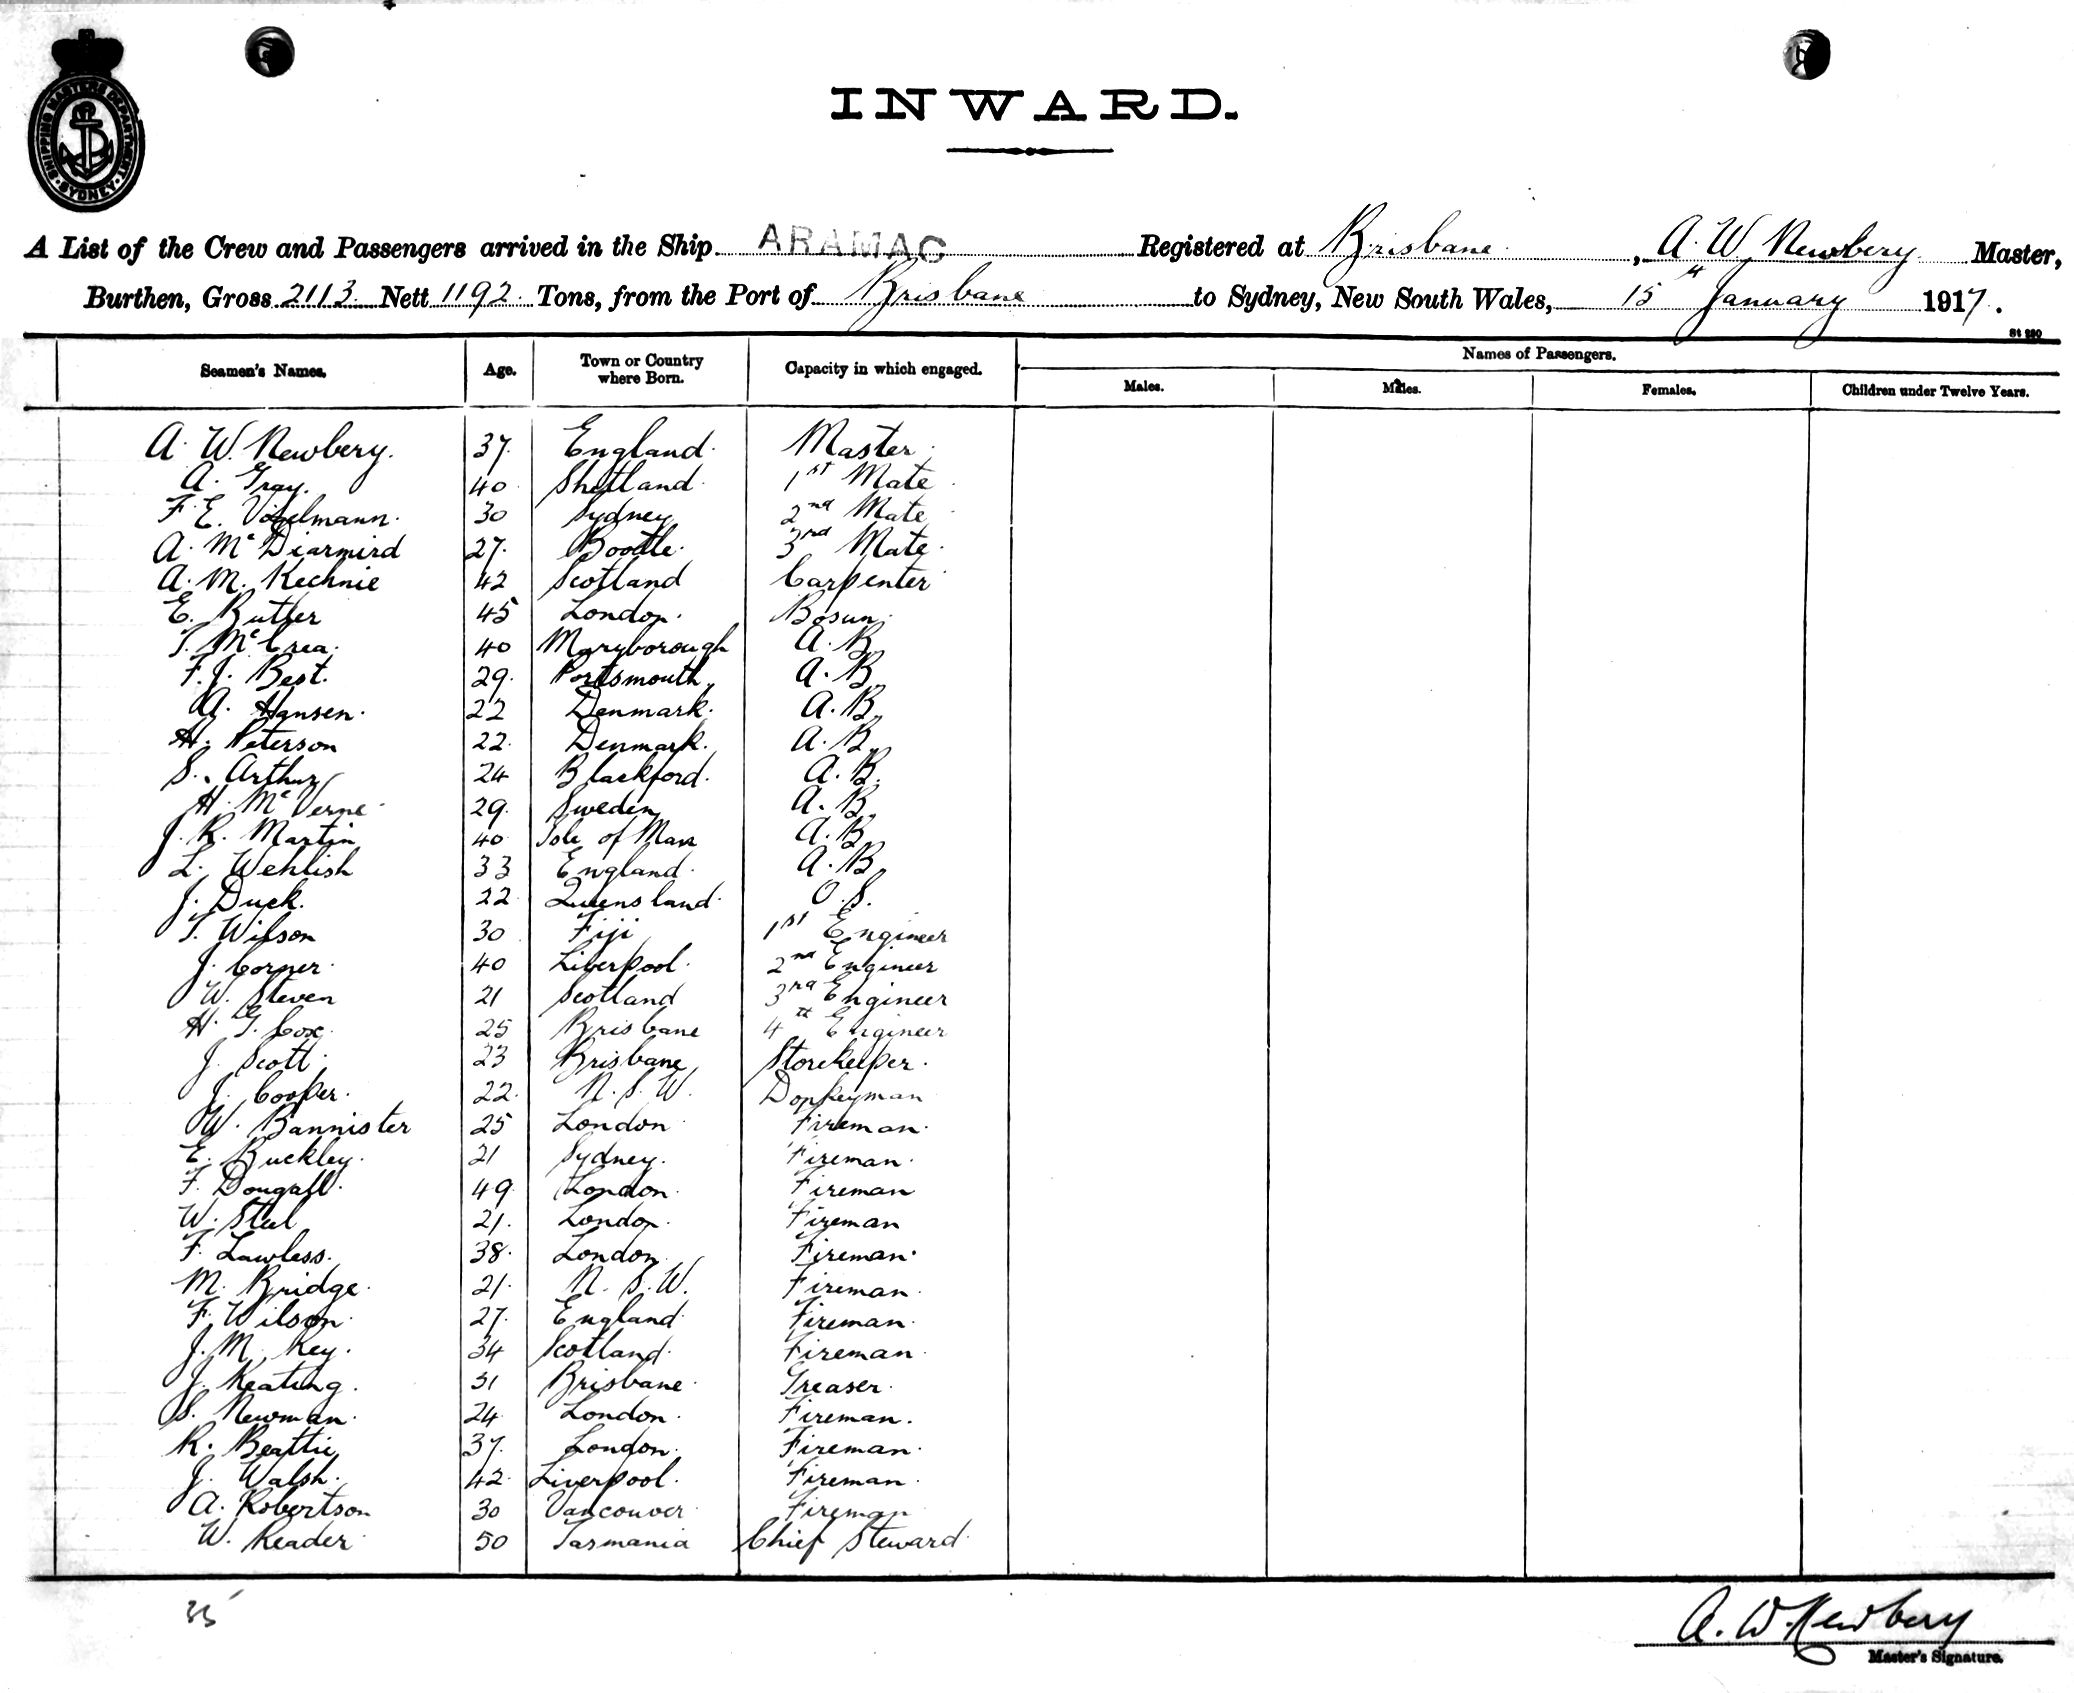 SHIPPING MASTERS DEPARTMENT · SYDNEY ·
INWARD.
A List of the Crew and Passengers arrived in the Ship ARAMAC Registered at Brisbane, A. W. Newbery Master,
Burthen, Gross 2113 Nett 1192 Tons, from the Port of Brisbane to Sydney, New South Wales, 15th January 1917.
St 220
Seamen's Names. Age. Town or Country where Born. Capacity in which engaged. Names of Passengers.
Males. Males. Females. Children under Twelve Years.
A. W. Newbery. 37. England. Master.
A. Gray. 40 Shetland 1st Mate
F. E. Vogelmann. 30 Sydney 2nd Mate
A. Mc Diarmird 27. Bootle. 3rd Mate.
A. M. Kechnie 42 Scotland Carpenter
E. Butler 45 London. Bosun.
T. Mc Crea. 40 Maryborough A. B.
F. J. Best. 29. Portsmouth. A. B.
A. Hansen. 22 Denmark. A. B.
H. Peterson 22. Denmark. A. B.
S. Arthur 24 Blackford. A. B.
H. Mc Verne 29. Sweden A. B.
J. R. Martin 40 Isle of Man A. B.
L. Wehlish 33 England. A. B.
J. Duck. 22 Queensland. O. S.
T. Wilson 30 Fiji 1st Engineer
J. Corner. 40 Liverpool. 2nd Engineer
W. Steven 21 Scotland 3rd Engineer
H. G. Cox. 25 Brisbane 4th Engineer
J. Scott. 23 Brisbane Storekeeper.
J. Cooper. 22. N. S. W. Donkeyman
W. Bannister 25 London Fireman.
E. Buckley. 21 Sydney. Fireman.
F. Dougall. 49 London. Fireman
W. Steel 21. London. Fireman
F. Lawless. 38. London. Fireman.
M. Bridge. 21. N. S. W. Fireman.
F. Wilson. 27. England. Fireman.
J. M. Key. 34 Scotland. Fireman.
J. Keating. 31 Brisbane. Greaser.
S. Newman. 24 London. Fireman.
R. Beattie 37. London. Fireman.
J. Walsh. 42. Liverpool. Fireman.
A. Robertson 30 Vancouver Fireman
W. Reader 50 Tasmania Chief Steward.
35
A. W. Newbery
Master's Signature.